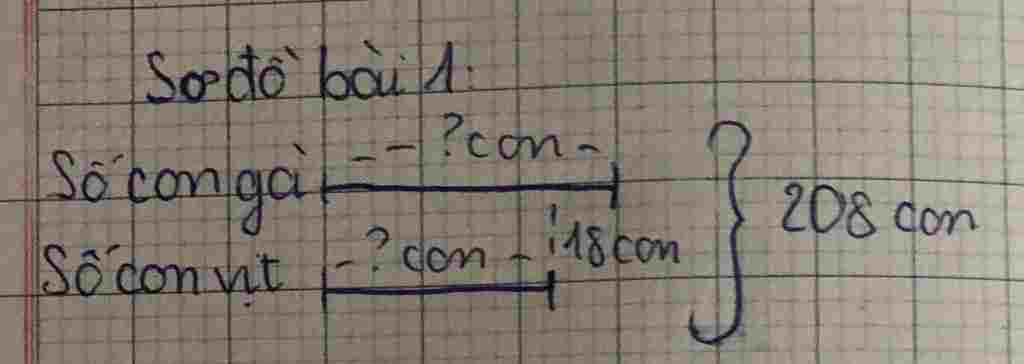 Sơ đồ bài 1:
Số con gà ? con
208 con
Số con vịt ? con 18 con